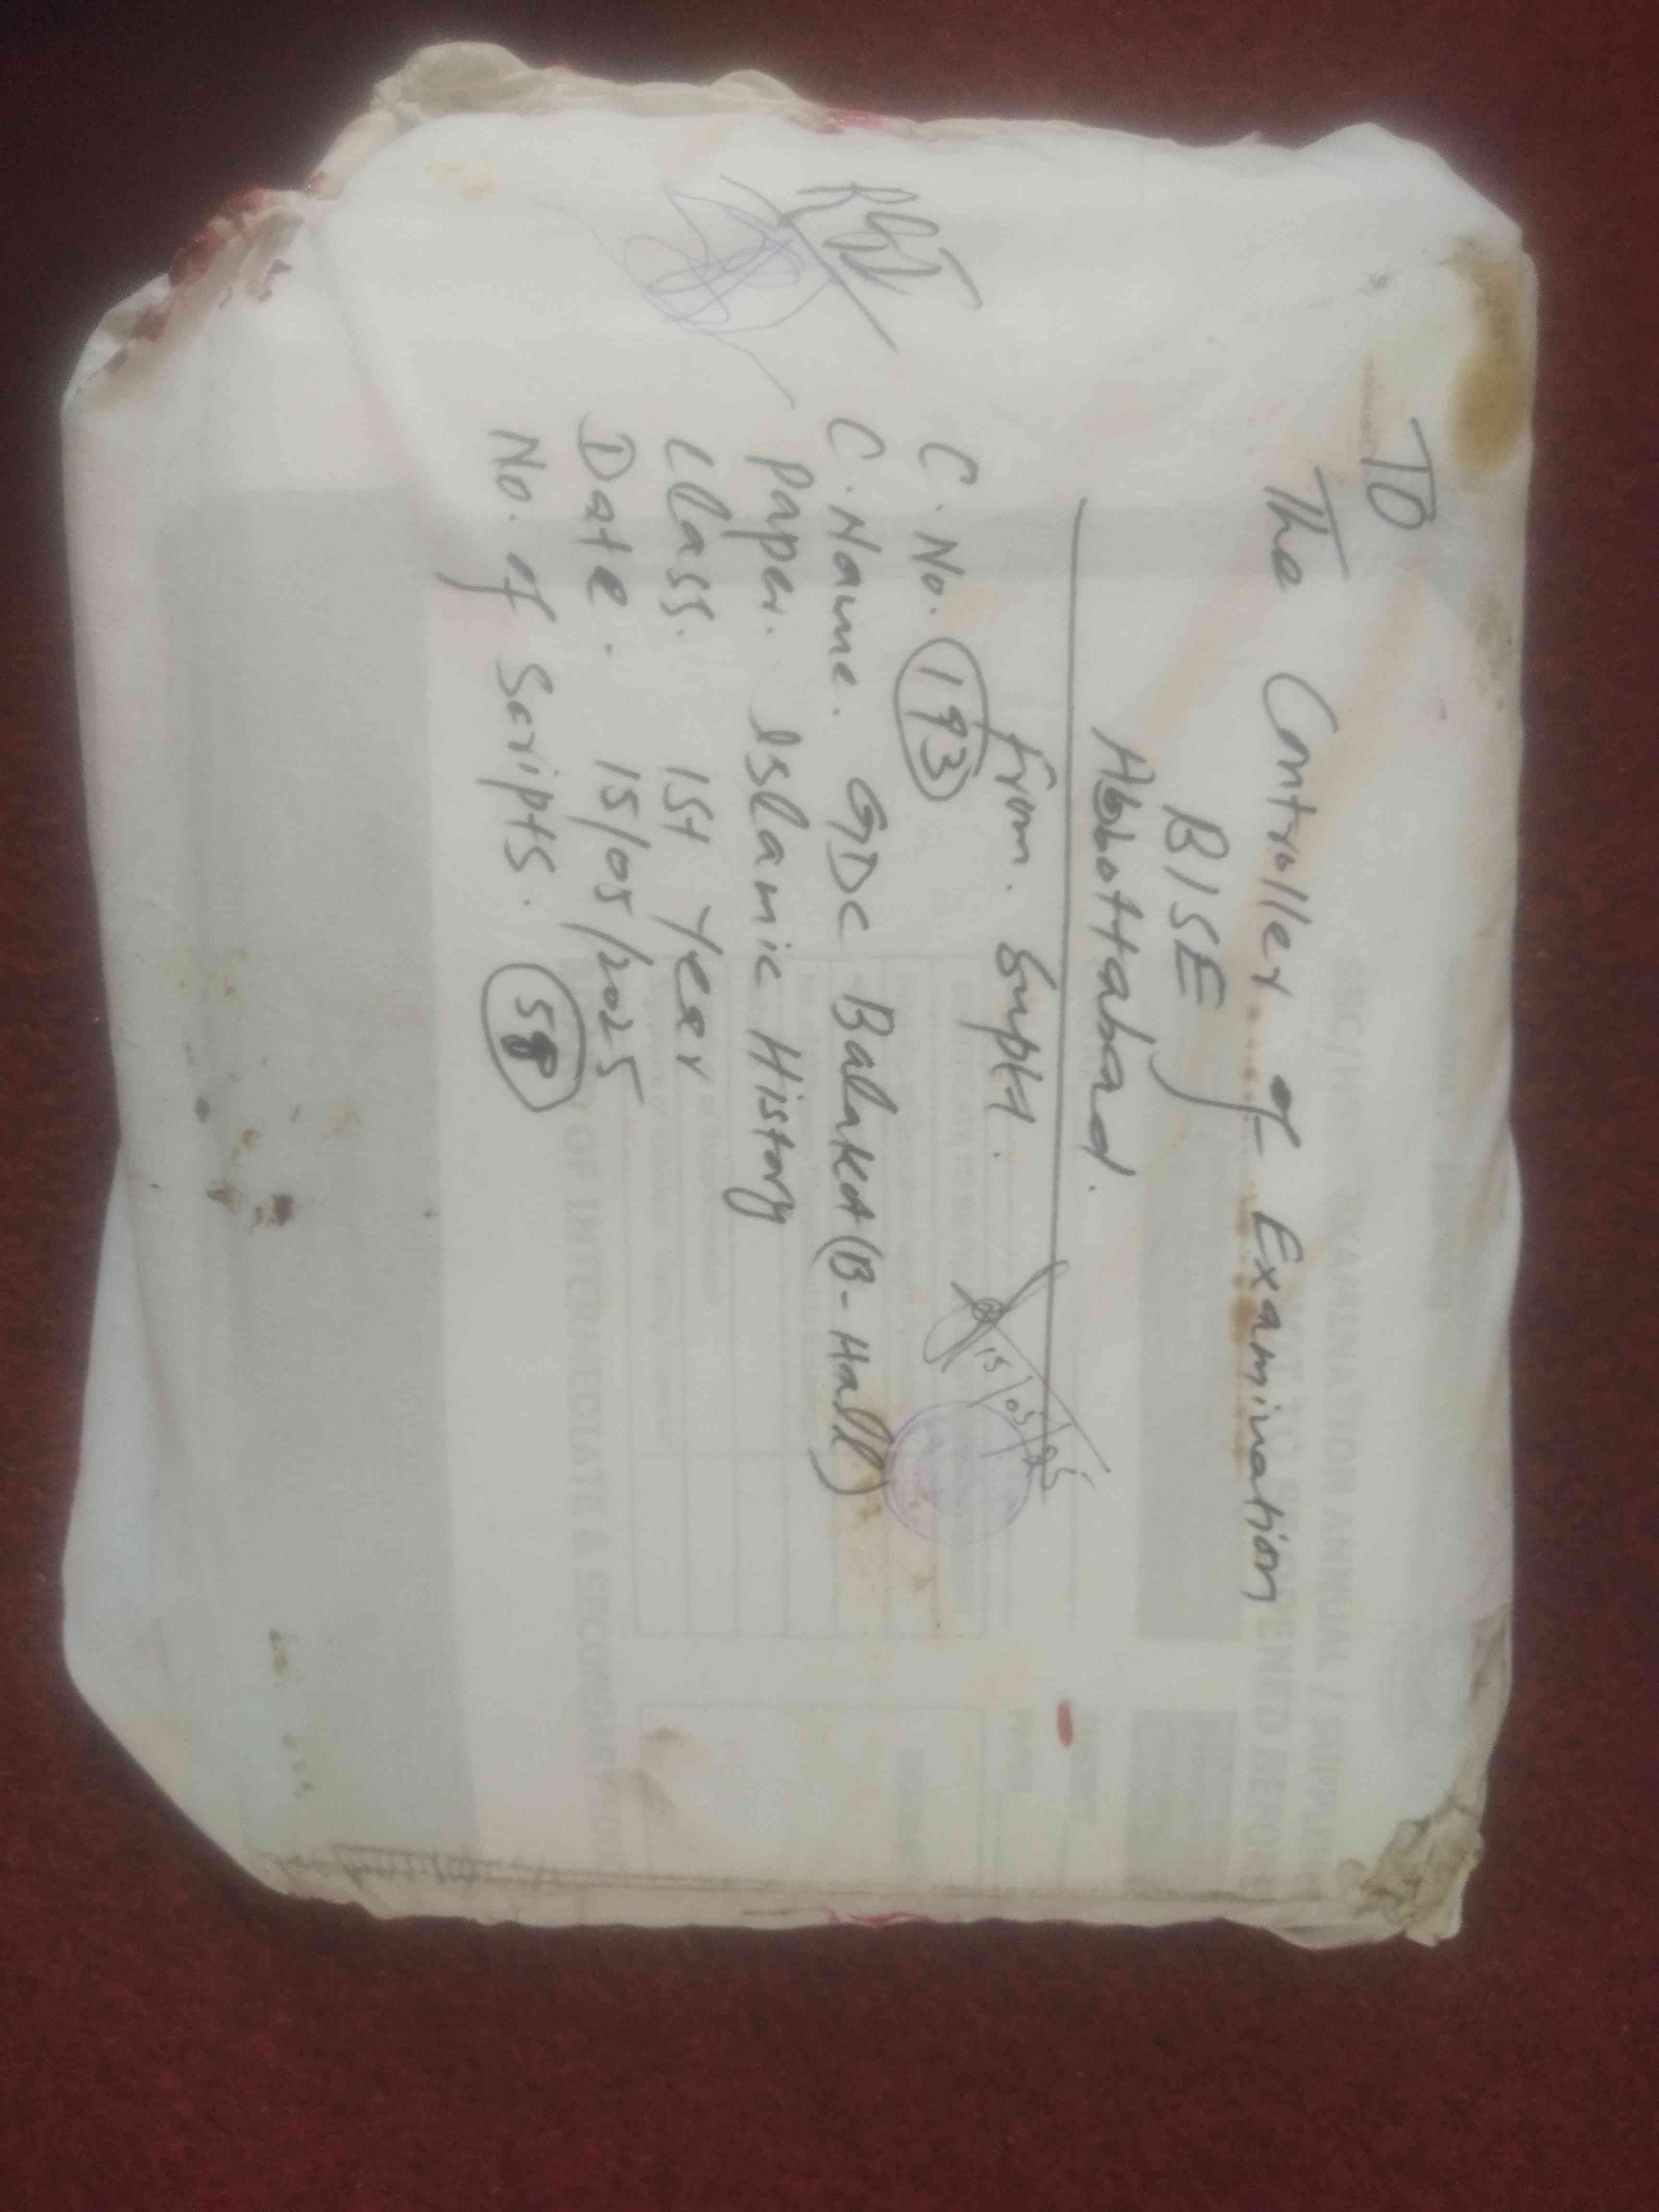 TO
The Controller of Examination
BISE
Abbottabad.
From. Supdt.
C. No. 193
C. Name. GDC Balakot (B-Hall)
Paper. Islamic History
Class. 1st Year
Date. 15/05/2025
No. of Scripts. 58
15/05/25
EXAMINATION ANNUAL /
OF INTERMEDIATE & SECONDARY